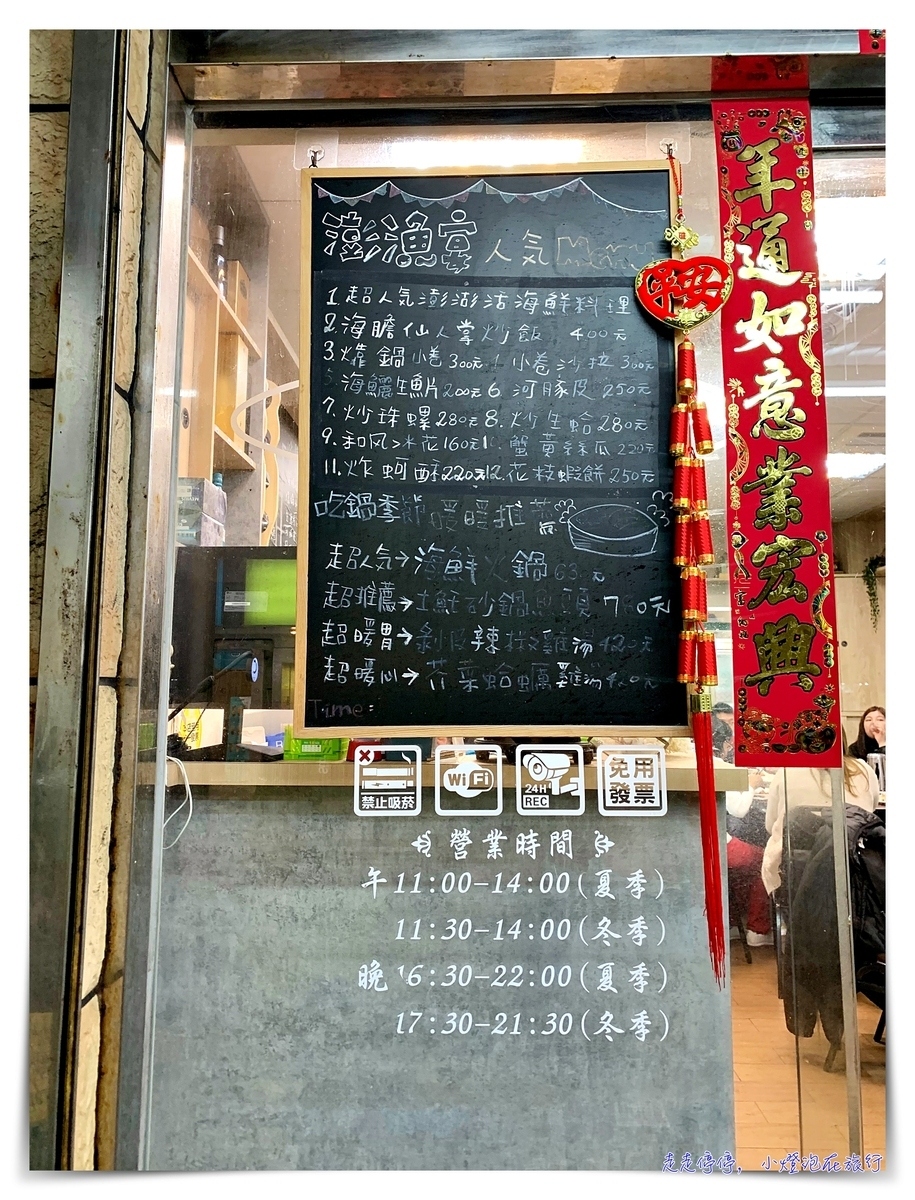 澎漁宴 人気 Menu
1.超人気澎湖活海鮮料理
2.海膽仙人掌炒飯 400元
3.燒鍋小卷300元 4.小卷沙拉 300元
5.海鱺生魚片200元 6.河豚皮 250元
7.炒珠螺280元 8.炒生蛤280元
9.和風冰花160元 蟹黃絲瓜220元
11.炸蚵酥220元 12.花枝蝦餅250元
吃鍋季節暖暖推薦
超人気→海鮮火鍋 63 元
超推薦→土魠砂鍋魚頭 7 0元
超暖胃→剝皮辣椒雞湯420元
超暖心→芥菜蛤蠣雞湯420元
Time:
平安
羊通如意業宏興
禁止吸菸
WiFi
24H REC
免用發票
營業時間
午11:00-14:00(夏季)
11:30-14:00(冬季)
晚16:30-22:00(夏季)
17:30-21:30(冬季)
走走停停,小燈泡在旅行